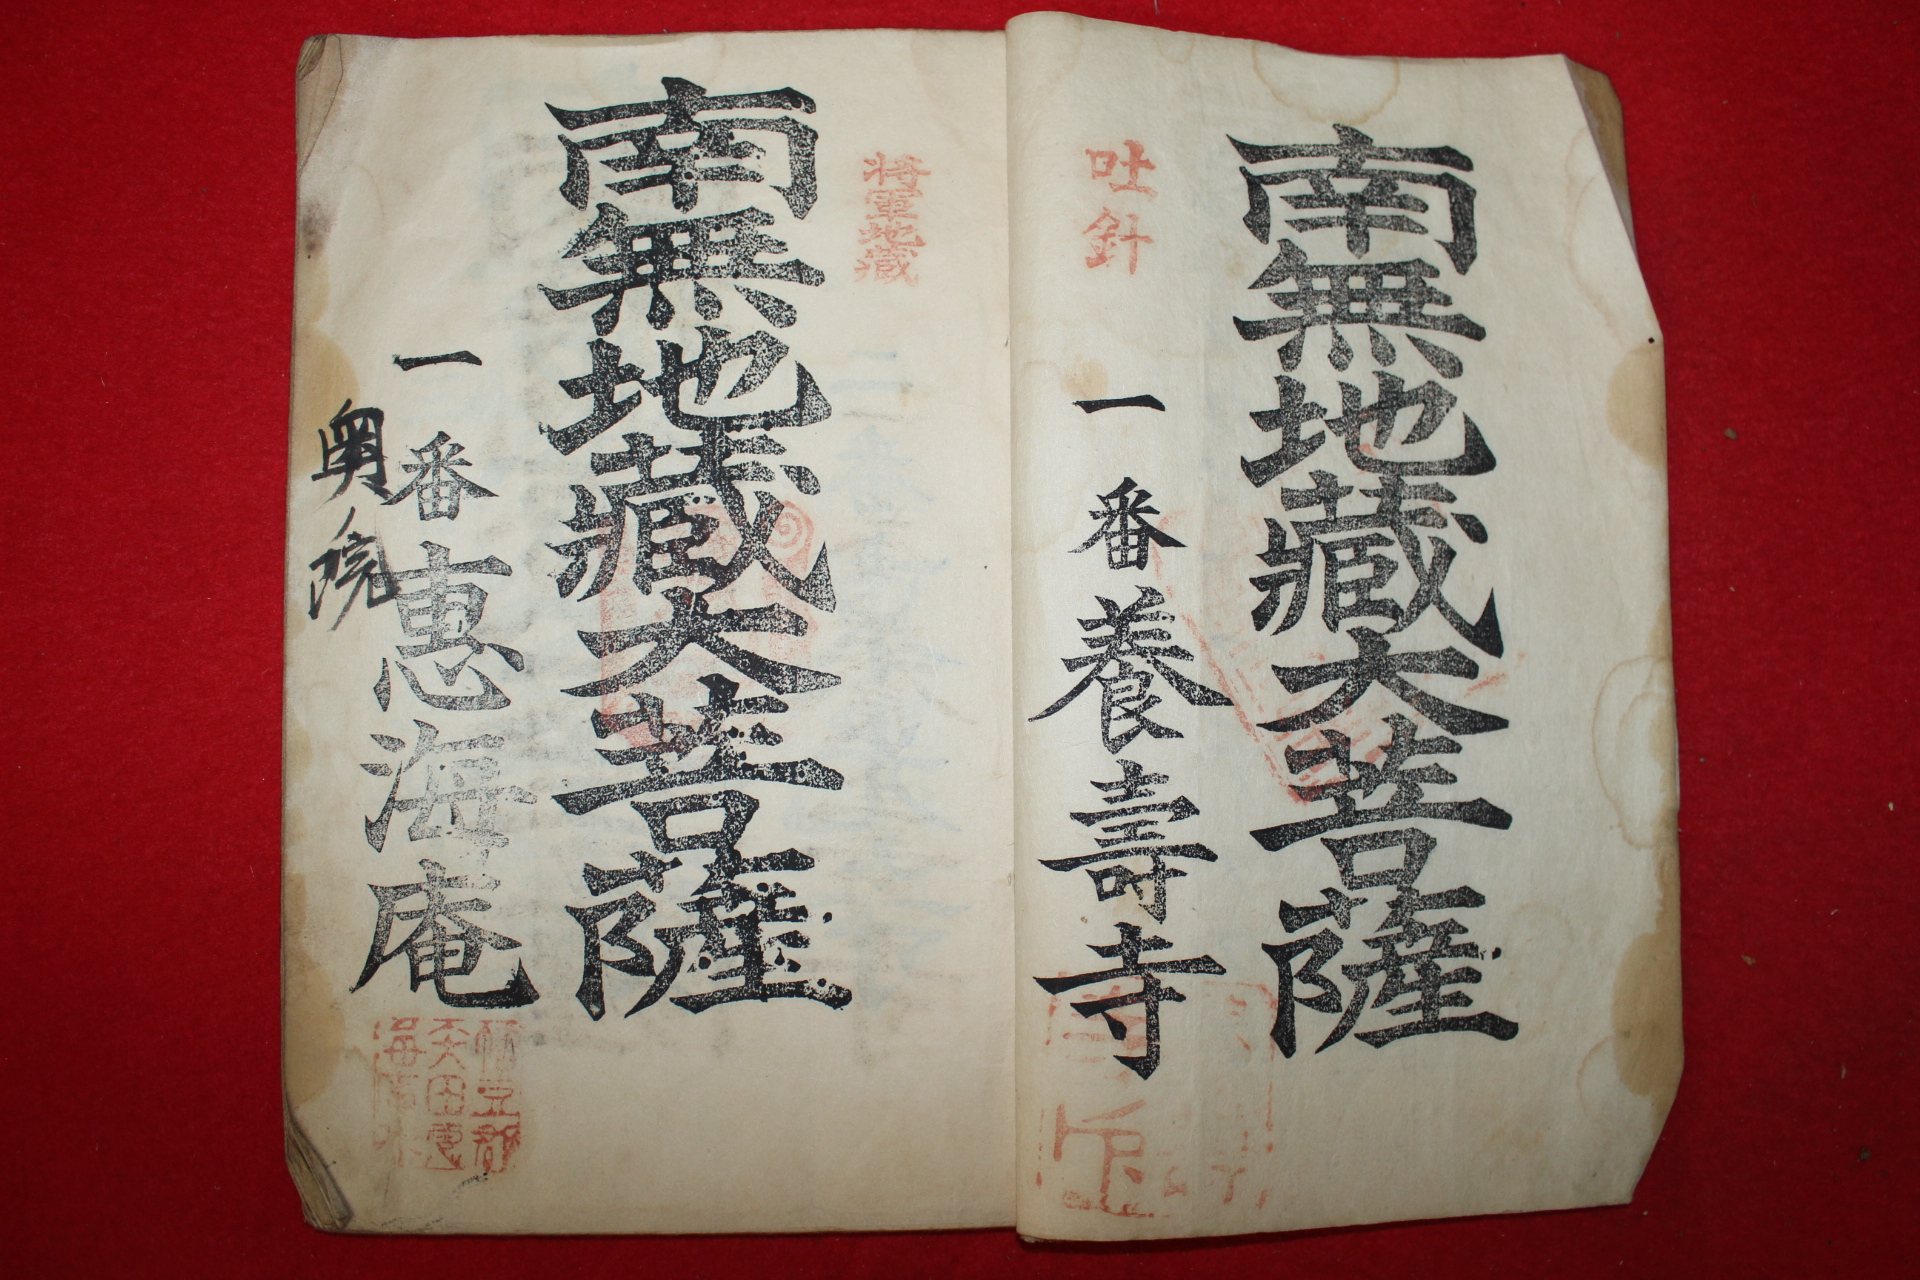 吐針
南無地蔵大菩薩
一番養壽寺
將軍地蔵
南無地蔵大菩薩
一番惠海庵
奥院